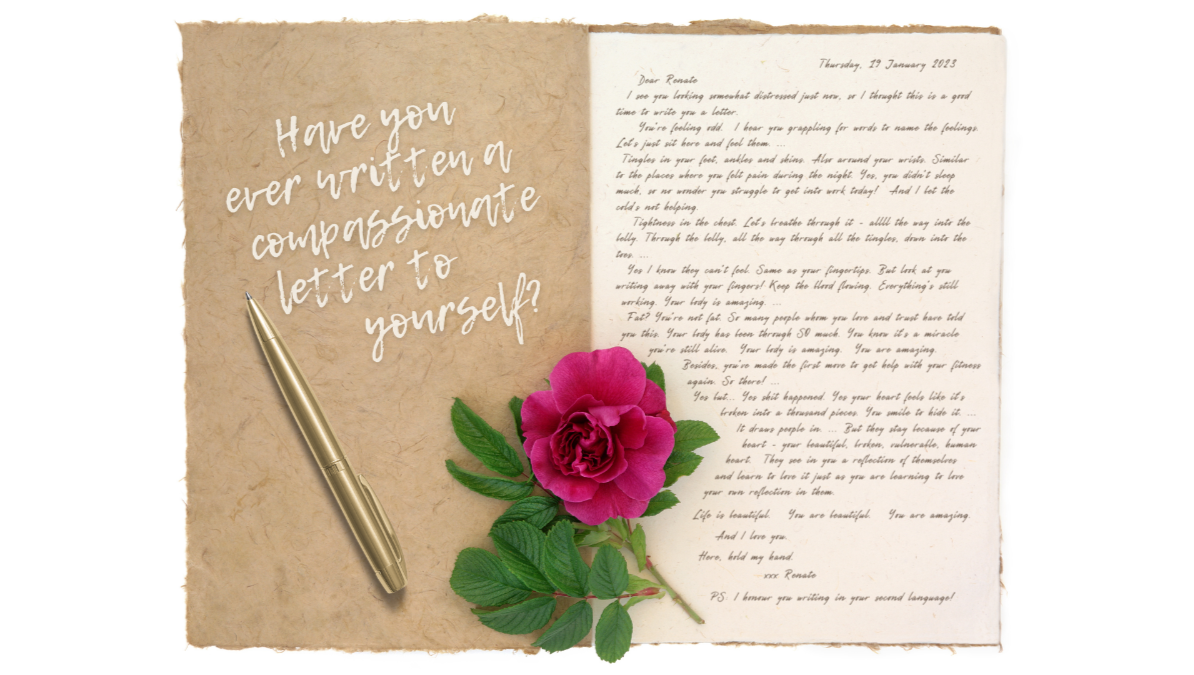 Have you
ever written a
compassionate
letter to
yourself?
Thursday, 19 January 2023
Dear Renate
I see you looking somewhat distressed just now, so I thought this is a good
time to write you a letter.
You're feeling odd. I hear you grappling for words to name the feelings.
Let's just sit here and feel them. ...
Tingles in your feet, ankles and shins. Also around your wrists. Similar
to the places where you felt pain during the night. Yes, you didn't sleep
much, so no wonder you struggle to get into work today! And I let the
cold's not helping.
Tightness in the chest. Let's breathe through it - allll the way into the
belly. Through the belly, all the way through all the tingles, down into the
toes. ...
Yes I know they can't feel. Same as your fingertips. But look at you
writing away with your fingers! Keep the blood flowing. Everything's still
working. Your body is amazing. ...
Fat? You're not fat. So many people whom you love and trust have told
you this. Your body has been through SO much. You know it's a miracle
you're still alive. Your body is amazing. You are amazing.
Besides, you've made the first move to get help with your fitness
again. So there! ...
Yes but... Yes shit happened. Yes your heart feels like it's
broken into a thousand pieces. You smile to hide it. ...
It draws people in. ... But they stay because of your
heart - your beautiful, broken, vulnerable, human
heart. They see in you a reflection of themselves
and learn to love it just as you are learning to love
your own reflection in them.
Life is beautiful. You are beautiful. You are amazing.
And I love you.
Here, hold my hand.
xxx Renate
PS: I honour you writing in your second language!